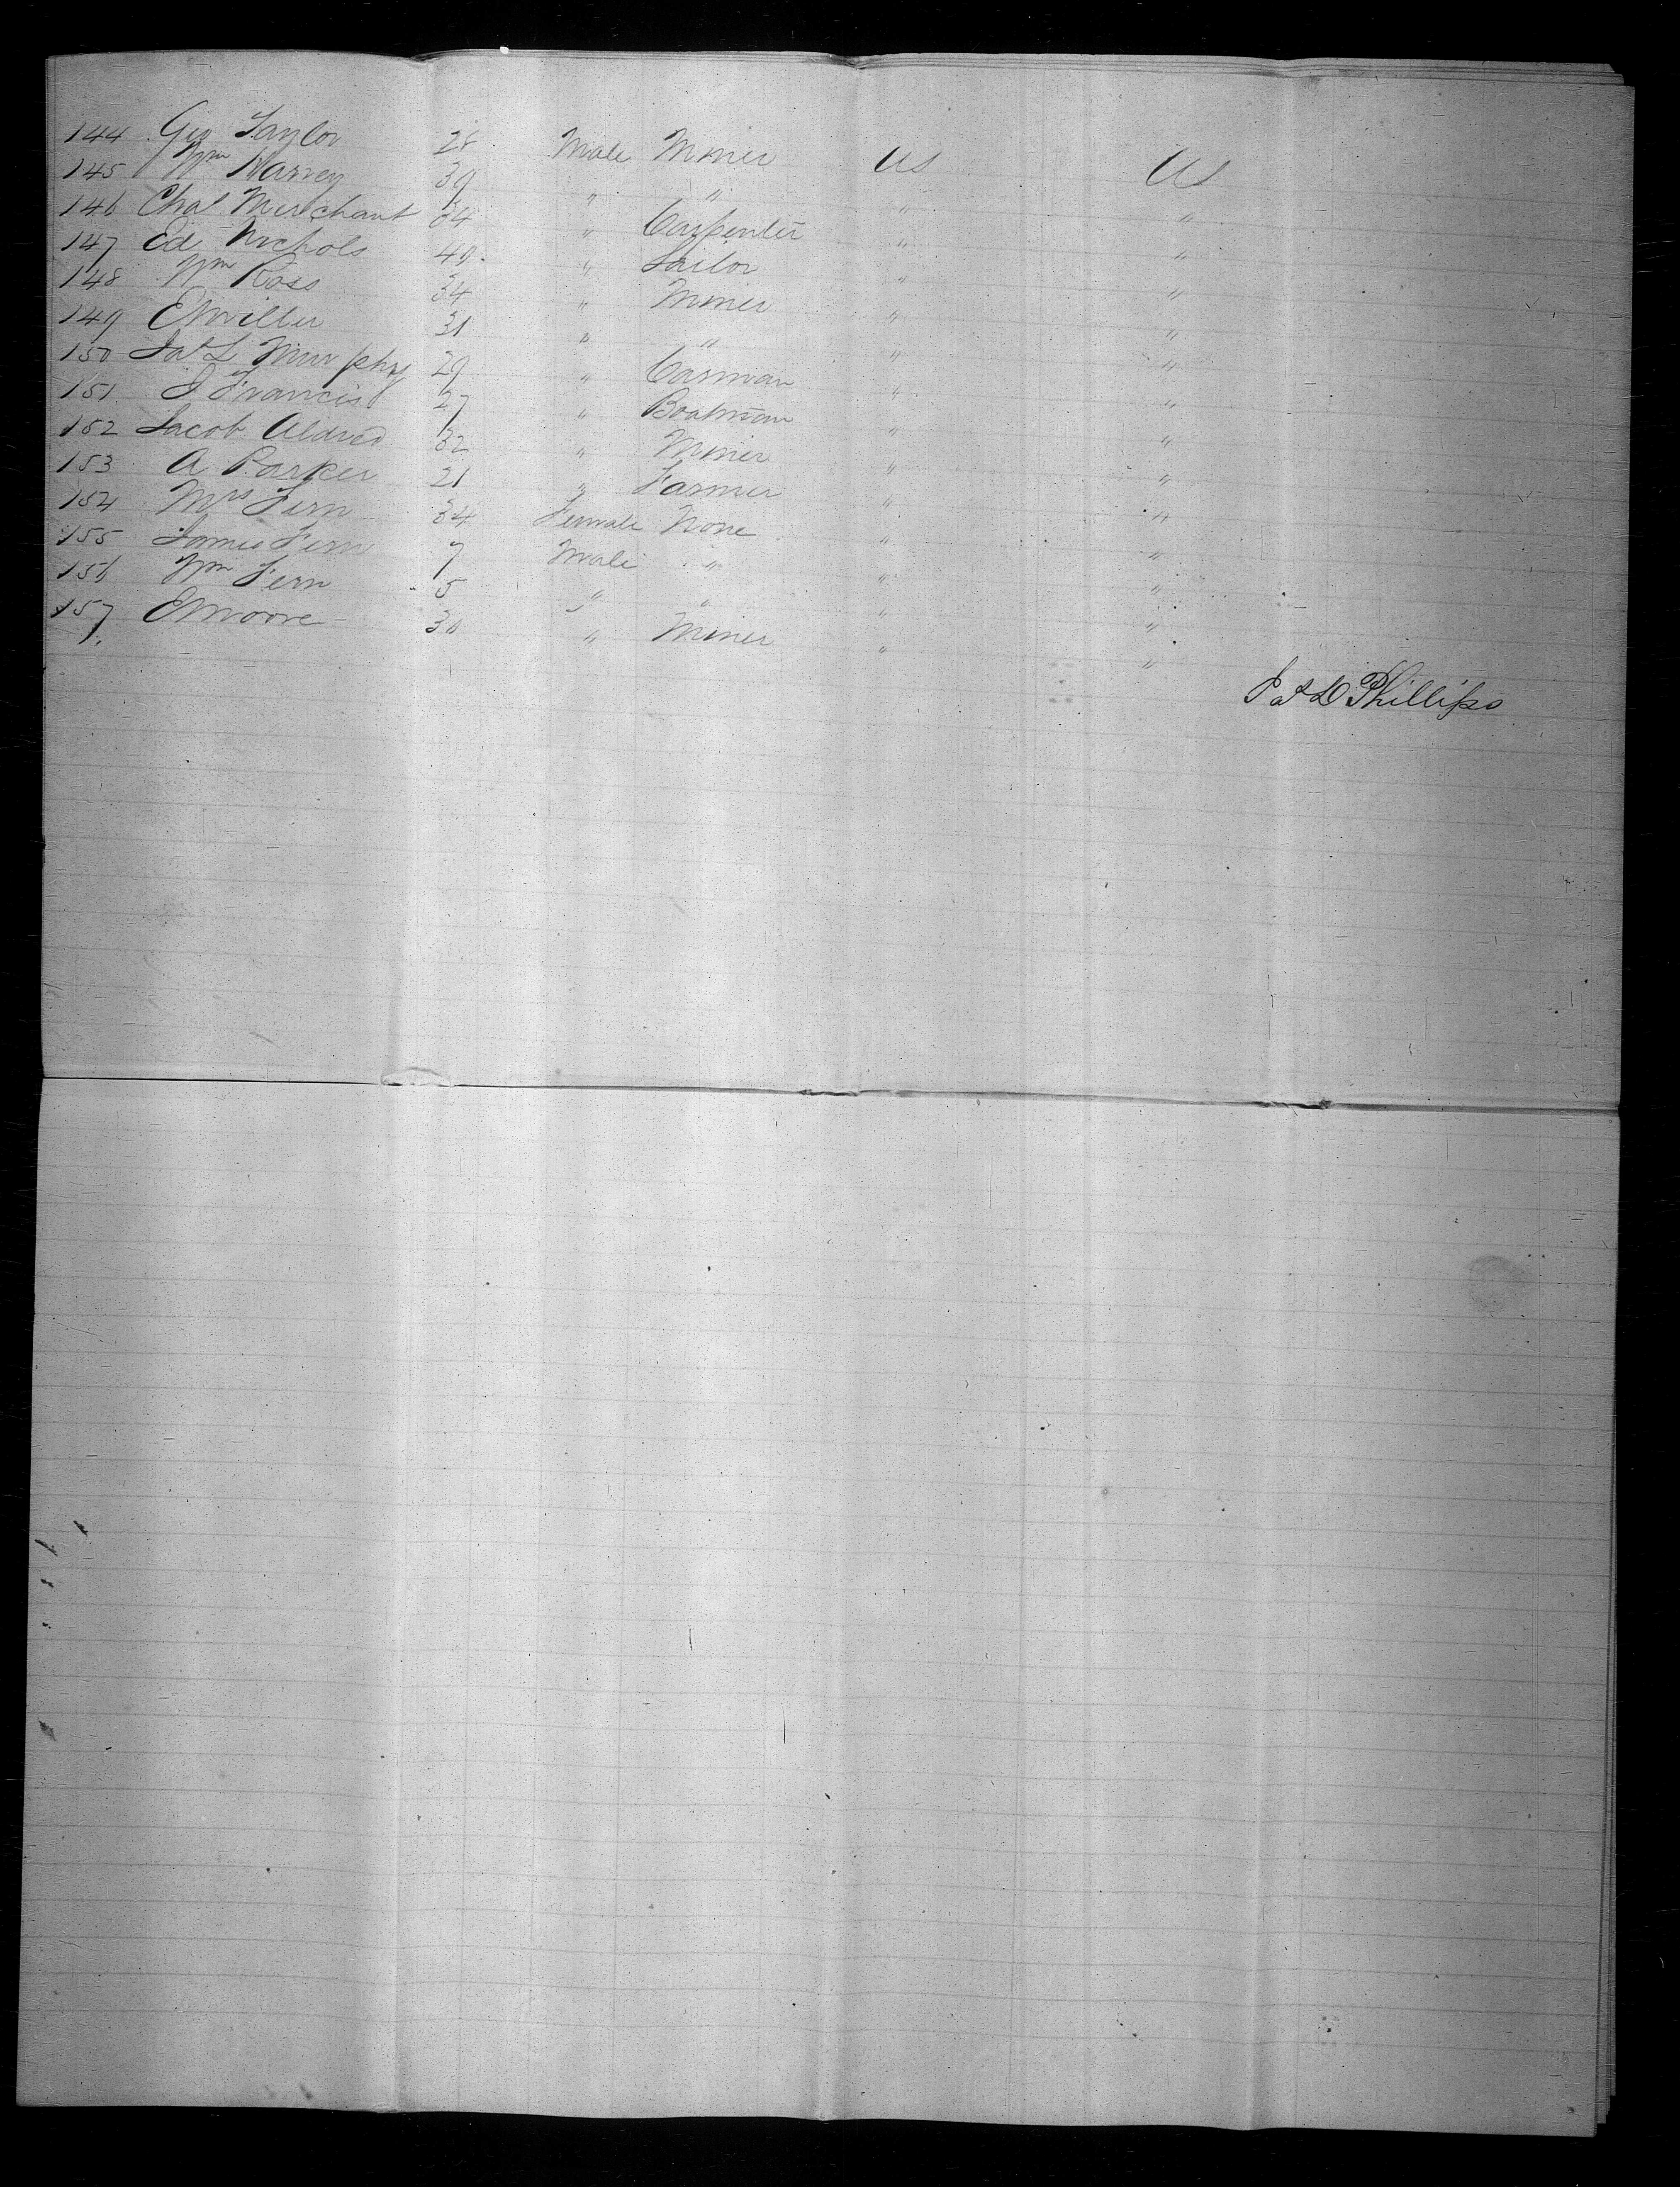 144 Geo Taylor 28 Male Miner US US
145 Wm Harvey 39 " " " "
146 Chas Merchant 34 " Carpenter " "
147 Ed Nichols 40 " Sailor " "
148 Wm Ross 34 " Miner " "
149 E Miller 31 " " " "
150 Jas L Murphy 29 " Carman " "
151 J Francis 27 " Boatman " "
152 Jacob Aldred 32 " Miner " "
153 A Parker 21 " Farmer " "
154 Mrs Fern 34 Female None " "
155 James Fern 7 Male " " "
156 Wm Fern 5 " " " "
157 E Moore 30 " Miner " "
Jas D Phillips